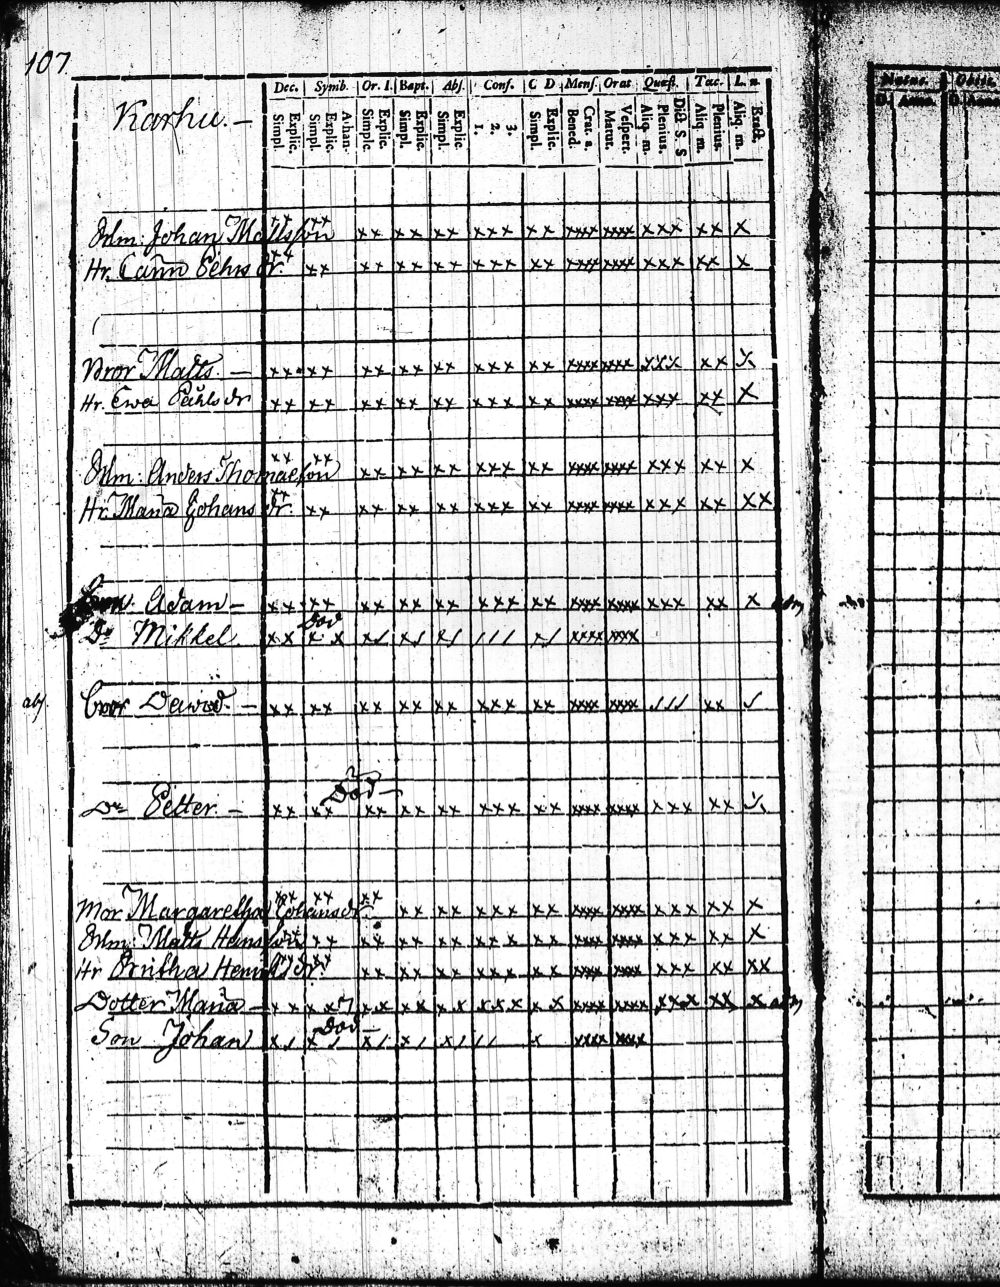 107.
Dec. Symb. Or. D. Bapt. Abs. Conf. C D Mens. Orat. Quæst. Tac. L. n.
Simpl. Explic. Simpl. Explic. Athan. Simplc. Explic. Simpl. Explic. Simpl. Explic. 1. 2. 3. Simpl. Explic. Bened. Grat. a. Matut. Vespert. Aliq. m. Plenius. Dict. S. S Aliq. m. Plenius. Aliq. m. Exact.
Natus. Obiit.
D. Anno. D. Anno
Karhu. —
Johan Mattsson xx xx xx xx xx xxx xx xxxx xxxx xxx xx x
Hr. Carin Pehrs dr. xx xx xx xx xx xxx xx xxxx xxxx xxx xx x
Bror Matts. — xx xx xx xx xx xxx xx xxxx xxxx xxx xx x
Hr. Ewa Påhls dr xx xx xx xx xx xxx xx xxxx xxxx xxx xx x
Anders Thomaesson xx xx xx xx xx xxx xx xxxx xxxx xxx xx x
Hr. Maria Johans dr. xx xx xx xx xx xxx xx xxxx xxxx xxx xx xx
Adam — xx xx xx xx xx xxx xx xxxx xxxx xxx xx x
Död
Dr Mikkel xx x x x/ x/ x/ /// x/ xxxx xxxx
Bror Dawid — xx xx xx xx xx xxx xx xxxx xxxx /// xx /
Död —
Dr Petter. — xx xx xx xx xx xxx xx xxxx xxxx xxx xx x
Mor Margaretha Johans dr. xx xx xx xx xx xxx xx xxxx xxxx xxx xx x
Matts Hensson xx xx xx xx xx xxx xx xxxx xxxx xxx xx x
Hr Britha Henriks dr. xx xx xx xx xx xxx xx xxxx xxxx xxx xx xx
Dotter Maria — xx xx xx xx xx xxx xx xxxx xxxx xxx xx x
Död —
Son Johan x/ x/ x/ x/ x/ // x xxxx xxxx